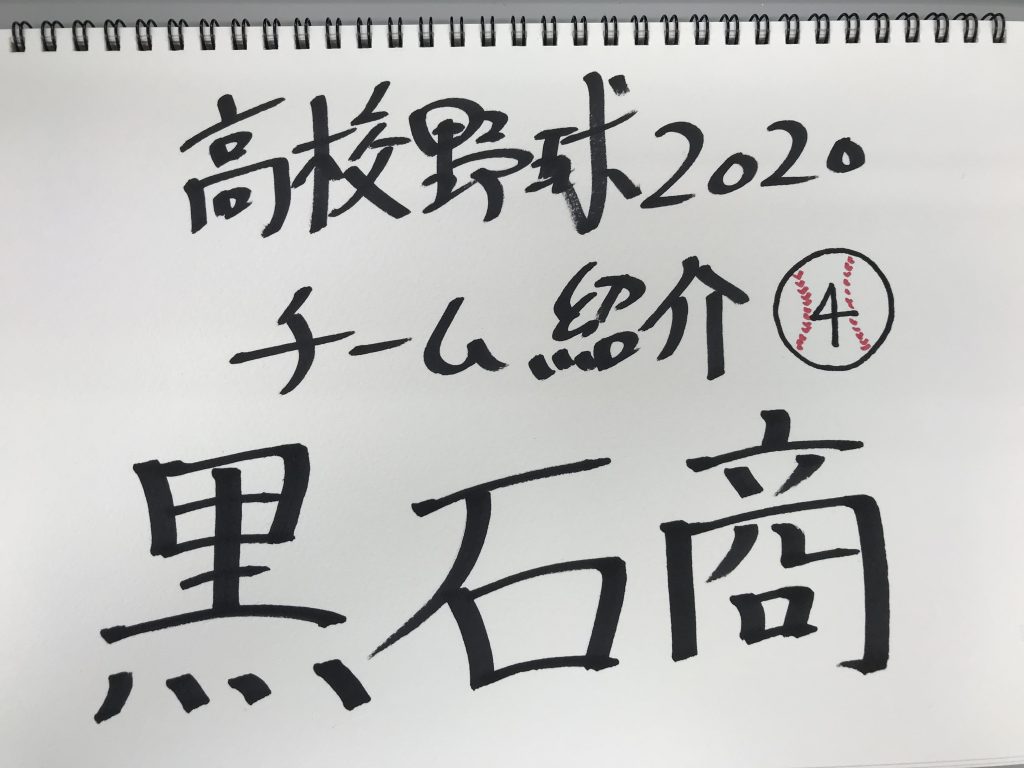 高校野球2020
チーム紹介④
黒石商